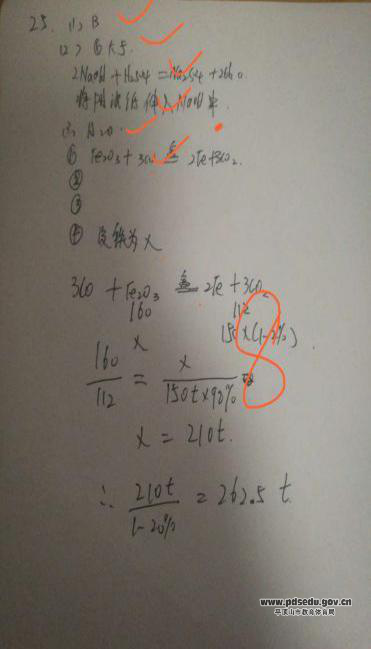 25. (1) B
(2) ① 大于
2NaOH + H₂SO₄ = Na₂SO₄ + 2H₂O
(3) H₂O
① Fe₂O₃ + 3CO 高温 2Fe + 3CO₂
②
③
④ 设铁为 x
3CO + Fe₂O₃ 高温 2Fe + 3CO₂
160 112
x 150×(1-2%)
160/112 = x/150t×98%
x = 210t
∴ 210t/1-20% = 262.5 t
www.pdsedu.gov.cn
平顶山市教育体育局